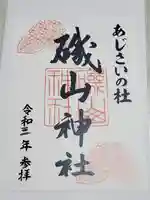 あじさいの杜
磯山神社
令和三年 参拝